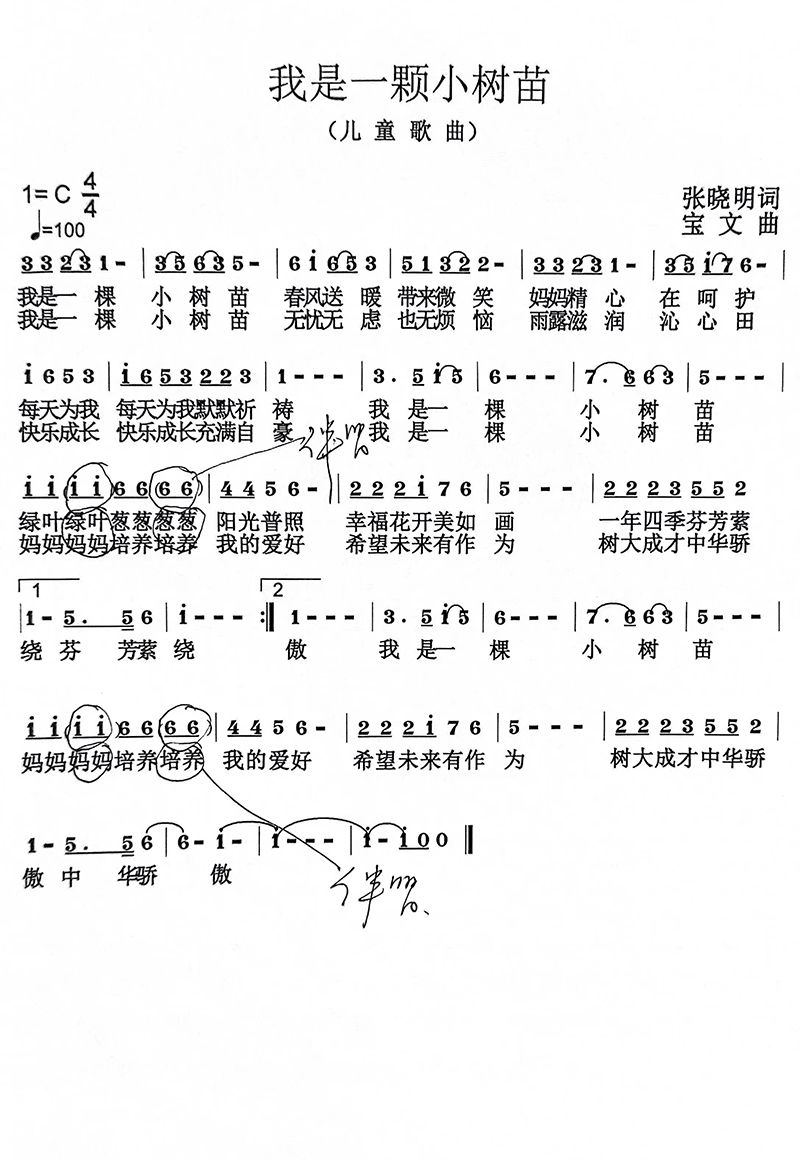 我是一颗小树苗
（儿童歌曲）
1=C 4/4
♩=100
张晓明词
宝文曲
3 3 2 3 1 - | 3 5 6 3 5 - | 6 i 6 5 3 | 5 1 3 2 2 - | 3 3 2 3 1 - | 3 5 i 7 6 - |
我是一棵小树苗 春风送暖带来微笑 妈妈精心在呵护
我是一棵小树苗 无忧无虑也无烦恼 雨露滋润沁心田
i 6 5 3 | i 6 5 3 2 2 3 | 1 - - - | 3 . 5 i 5 | 6 - - - | 7 . 6 6 3 | 5 - - - |
每天为我 每天为我默默祈祷 我是一棵小树苗
快乐成长 快乐成长充满自豪 我是一棵小树苗
伴唱
i i i i 6 6 6 6 | 4 4 5 6 - | 2 2 2 i 7 6 | 5 - - - | 2 2 2 3 5 5 2 |
绿叶绿叶葱葱葱葱 阳光普照 幸福花开美如画 一年四季芬芳萦
妈妈妈妈培养培养 我的爱好 希望未来有作为 树大成才中华骄
1 2
1 - 5 . 5 6 | i - - - :‖ 1 - - - | 3 . 5 i 5 | 6 - - - | 7 . 6 6 3 | 5 - - - |
绕芬芳萦绕 傲 我是一棵小树苗
i i i i 6 6 6 6 | 4 4 5 6 - | 2 2 2 i 7 6 | 5 - - - | 2 2 2 3 5 5 2 |
妈妈妈妈培养培养 我的爱好 希望未来有作为 树大成才中华骄
1 - 5 . 5 6 | 6 - i - | i - - - | i - i 0 0 ‖
傲中华骄傲
伴唱、